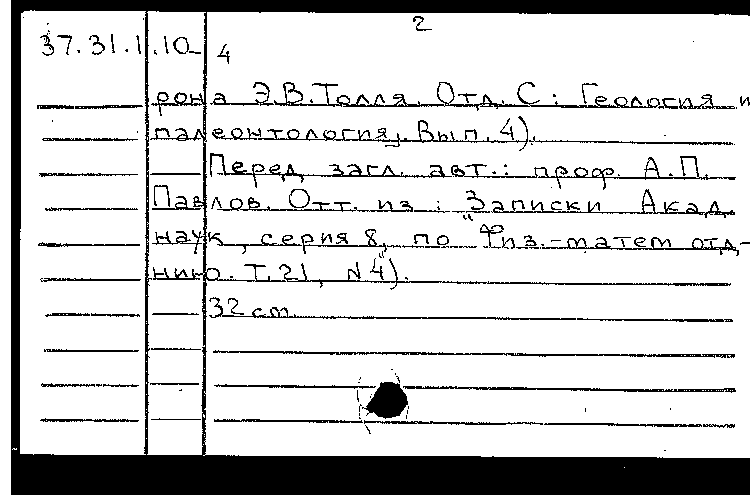 2
37.31.1.10- 4
рона Э.В.Толля. Отд. С: Геология и
палеонтология, Вып. 4).
Перед загл. авт.: проф. А.П.
Павлов. Отт. из: Записки Акад.
наук, серия 8, по "Физ.-матем отд-
нию. Т.21, N4").
32 cm.